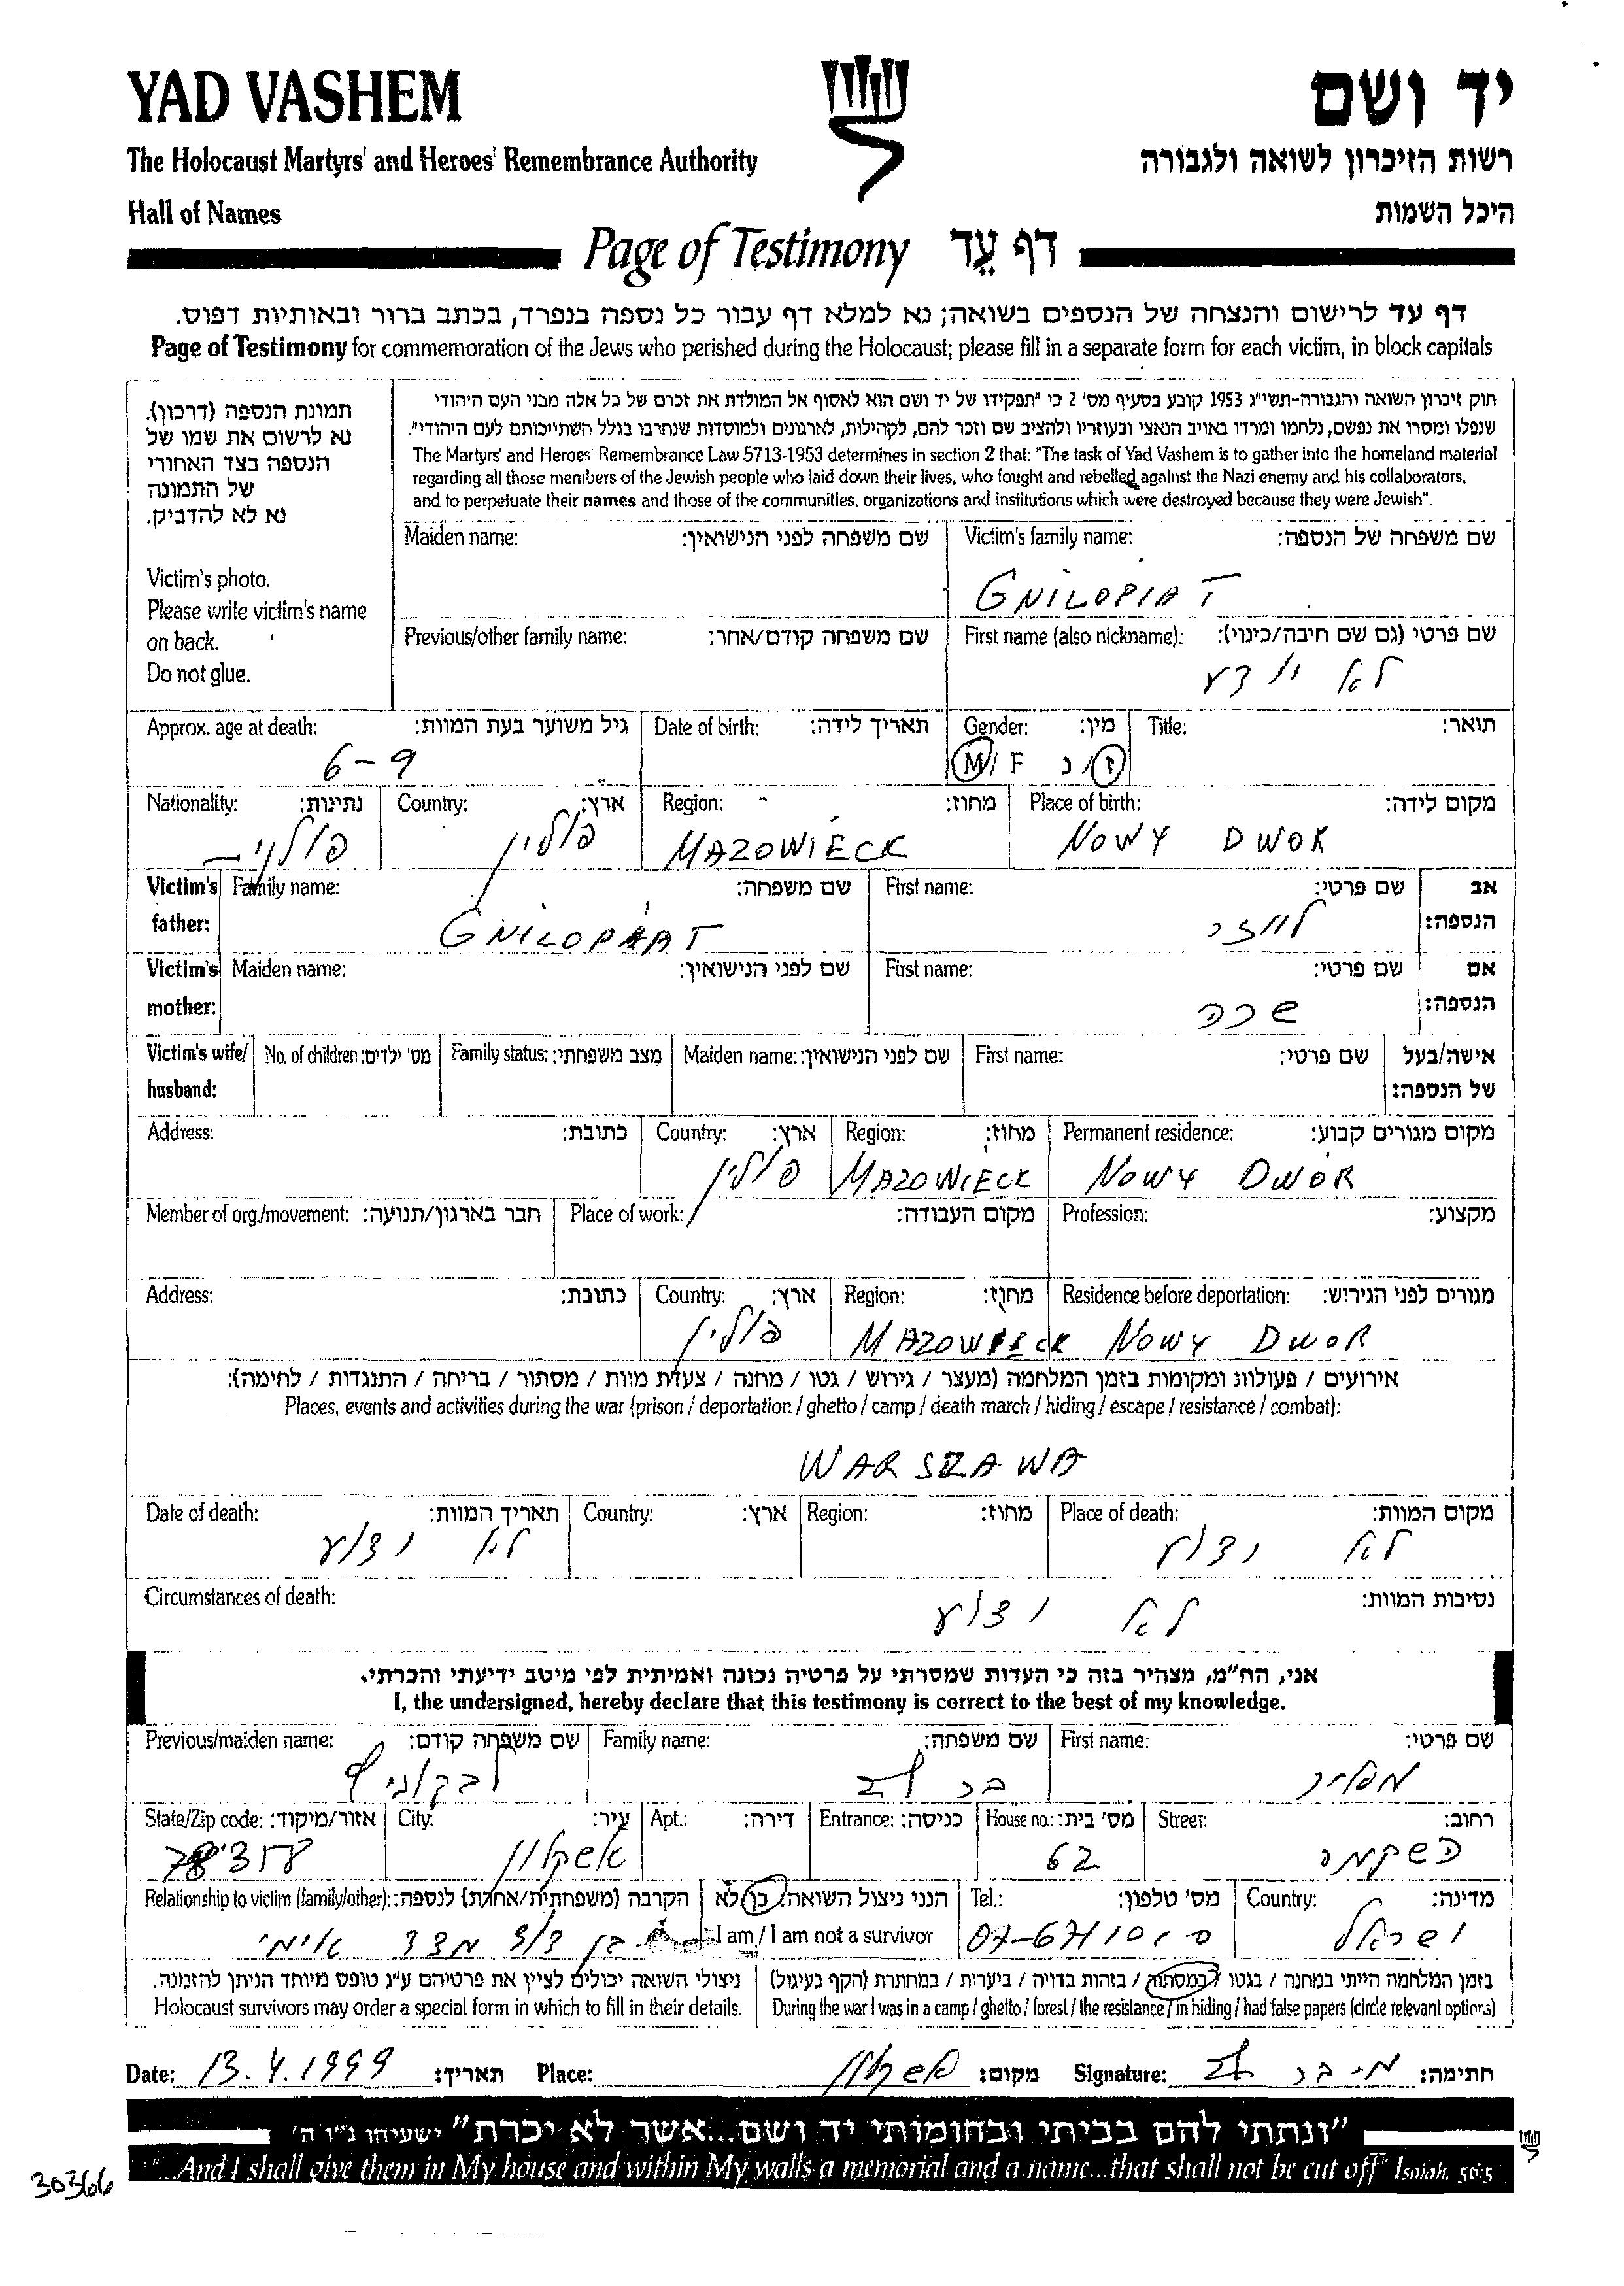 YAD VASHEM
יד ושם
The Holocaust Martyrs' and Heroes' Remembrance Authority
רשות הזיכרון לשואה ולגבורה
Hall of Names
היכל השמות
Page of Testimony דף עֵד
דף עד לרישום והנצחה של הנספים בשואה; נא למלא דף עבור כל נספה בנפרד, בכתב ברור ובאותיות דפוס.
Page of Testimony for commemoration of the Jews who perished during the Holocaust; please fill in a separate form for each victim, in block capitals
תמונת הנספה (דרכון).
נא לרשום את שמו של
הנספה בצד האחורי
של התמונה
נא לא להדביק.
Victim's photo.
Please write victim's name
on back.
Do not glue.
חוק זיכרון השואה והגבורה-תשי"ג 1953 קובע בסעיף מס' 2 כי "תפקידו של יד ושם הוא לאסוף אל המולדת את זכרם של כל אלה מבני העם היהודי
שנפלו ומסרו את נפשם, נלחמו ומרדו באויב הנאצי ובעוזריו ולהציב שם וזכר להם, לקהילות, לארגונים ולמוסדות שנחרבו בגלל השתייכותם לעם היהודי".
The Martyrs' and Heroes' Remembrance Law 5713-1953 determines in section 2 that: "The task of Yad Vashem is to gather into the homeland material
regarding all those members of the Jewish people who laid down their lives, who fought and rebelled against the Nazi enemy and his collaborators,
and to perpetuate their names and those of the communities, organizations and institutions which were destroyed because they were Jewish".
Maiden name: שם משפחה לפני הנישואין: Victim's family name: שם משפחה של הנספה:
GNILOPIAT
Previous/other family name: שם משפחה קודם/אחר: First name (also nickname): שם פרטי (גם שם חיבה/כינוי):
לא ידע
Approx. age at death: גיל משוער בעת המוות: Date of birth: תאריך לידה: Gender: מין: Title: תואר:
6-9 M/F ז/נ
Nationality: נתינות: Country: ארץ: Region: מחוז: Place of birth: מקום לידה:
פולני פולין MAZOWIECK NOWY DWOR
Victim's father: Family name: שם משפחה: First name: שם פרטי: אב הנספה:
GNILOPIAT
Victim's mother: Maiden name: שם לפני הנישואין: First name: שם פרטי: אם הנספה:
שרה
Victim's wife/ husband: No. of children: מס' ילדים: Family status: מצב משפחתי: Maiden name: שם לפני הנישואין: First name: שם פרטי: אישה/בעל של הנספה:
Address: כתובת: Country: ארץ: Region: מחוז: Permanent residence: מקום מגורים קבוע:
פולין MAZOWIECK NOWY DWOR
Member of org./movement: חבר בארגון/תנועה: Place of work: מקום העבודה: Profession: מקצוע:
Address: כתובת: Country: ארץ: Region: מחוז: Residence before deportation: מגורים לפני הגירוש:
פולין MAZOWIECK NOWY DWOR
אירועים / פעולות ומקומות בזמן המלחמה (מעצר / גירוש / גטו / מחנה / צעדת מוות / מסתור / בריחה / התנגדות / לחימה):
Places, events and activities during the war (prison / deportation / ghetto / camp / death march / hiding / escape / resistance / combat):
WARSZAWA
Date of death: תאריך המוות: Country: ארץ: Region: מחוז: Place of death: מקום המוות:
לא ידוע לא ידוע
Circumstances of death: נסיבות המוות:
לא ידוע
אני, הח"מ, מצהיר בזה כי העדות שמסרתי על פרטיה נכונה ואמיתית לפי מיטב ידיעתי והכרתי.
I, the undersigned, hereby declare that this testimony is correct to the best of my knowledge.
Previous/maiden name: שם משפחה קודם: Family name: שם משפחה: First name: שם פרטי:
State/Zip code: אזור/מיקוד: City: עיר: Apt.: דירה: Entrance: כניסה: House no.: מס' בית: Street: רחוב:
אשקלון 62 השקמה
Relationship to victim (family/other): הקרבה (משפחתית/אחרת) לנספה: הנני ניצול השואה: כן לא Tel.: מס' טלפון: Country: מדינה:
I am / I am not a survivor
בן דוד מצד אימי ישראל
ניצולי השואה יכולים לציין את פרטיהם ע"ג טופס מיוחד הניתן להזמנה. בזמן המלחמה הייתי במחנה / בגטו / במסתור / בזהות בדויה / ביערות / במחתרת (הקף בעיגול)
Holocaust survivors may order a special form in which to fill in their details. During the war I was in a camp / ghetto / forest / the resistance / in hiding / had false papers (circle relevant options)
Date: 13.4.1999 תאריך: Place: אשקלון מקום: Signature: חתימה:
"ונתתי להם בביתי ובחומותי יד ושם...אשר לא יכרת" ישעיהו נ"ו ה'
"...And I shall give them in My house and within My walls a memorial and a name...that shall not be cut off" Isaiah. 56:5
30366